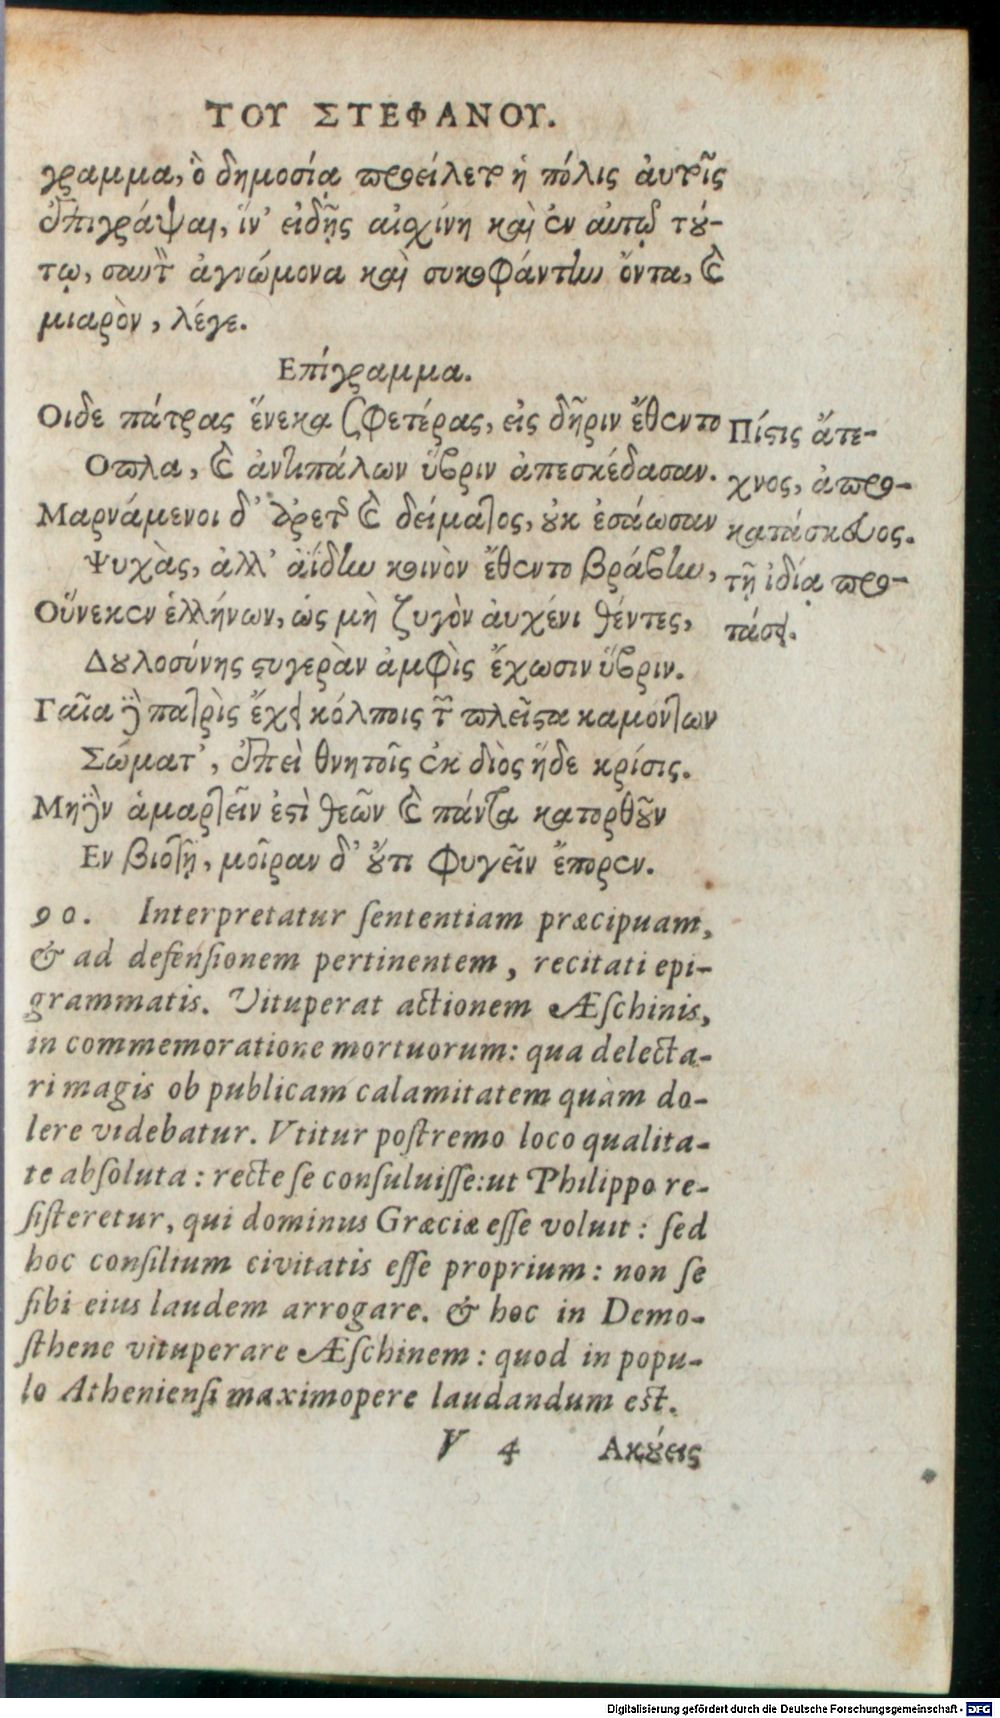 ΤΟΥ ΣΤΕΦΑΝΟΥ.
γραμμα, ὃ δημοσίᾳ προείλετο ἡ πόλις αὐτοῖς
ἐπιγράψαι, ἵν' εἰδῇς αἰσχίνη καὶ ἐν αὐτῷ τού-
τῳ, σαυτὸν ἀγνώμονα καὶ συκοφάντην ὄντα, καὶ
μιαρὸν, λέγε.
Επίγραμμα.
Οιδε πάτρας ἕνεκα σφετέρας, εἰς δῆριν ἔθεντο
Οπλα, καὶ ἀντιπάλων ὕβριν ἀπεσκέδασαν.
Μαρνάμενοι δ' ἀρετῆς καὶ δείματος, οὐκ ἐσάωσαν
Ψυχὰς, ἀλλ' ἀΐδην κοινὸν ἔθεντο βράβην,
Οὕνεκεν ἑλλήνων, ὡς μὴ ζυγὸν ἀυχένι θέντες,
Δουλοσύνης στυγερὰν ἀμφὶς ἔχωσιν ὕβριν.
Γαῖα δὲ πατρὶς ἔχει κόλποις τῶν πλεῖστα καμόντων
Σώματ', ἐπεὶ θνητοῖς ἐκ διὸς ἥδε κρίσις.
Μηδὲν ἁμαρτεῖν ἐστὶ θεῶν καὶ πάντα κατορθοῦν
Εν βιοτῇ, μοῖραν δ' οὔτι φυγεῖν ἔπορεν.
Πίστις ἄτε-
χνος, ἀπρο-
κατάσκευος.
τῇ ἰδίᾳ προ-
τάσει.
90. Interpretatur sententiam præcipuam,
& ad defensionem pertinentem, recitati epi-
grammatis. Vituperat actionem Æschinis,
in commemoratione mortuorum: qua delecta-
ri magis ob publicam calamitatem quàm do-
lere videbatur. Vtitur postremo loco qualita-
te absoluta: recte se consuluisse: ut Philippo re-
sisteretur, qui dominus Græciæ esse voluit: sed
hoc consilium civitatis esse proprium: non se
sibi eius laudem arrogare. & hoc in Demo-
sthene vituperare Æschinem: quod in popu-
lo Atheniensi maximopere laudandum est.
V 4 Ακούεις
Digitalisierung gefördert durch die Deutsche Forschungsgemeinschaft - DFG